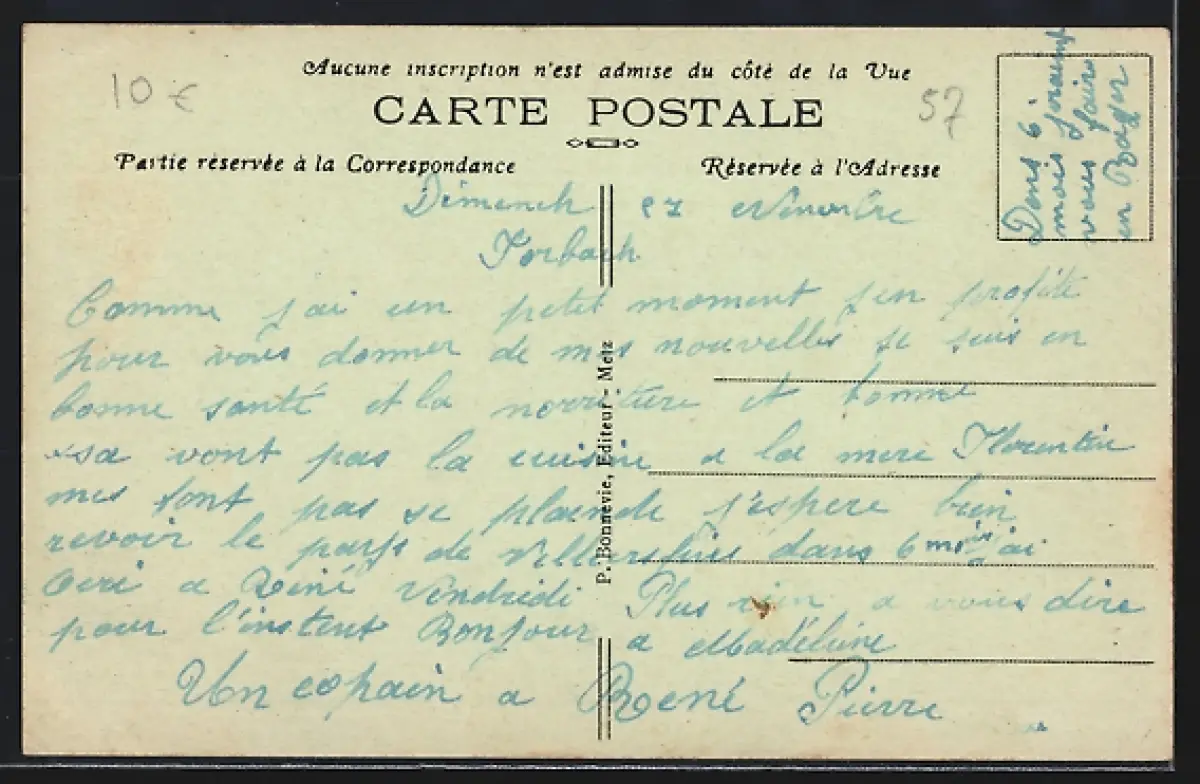 Aucune inscription n'est admise du côté de la Vue
10 €
CARTE POSTALE
57
Partie réservée à la Correspondance
Réservée à l'Adresse
Dans 6
mois
vous faire
un
Dimench 27 Novenbre
Forbach
Comme j'ai un petit moment j'en profite
pour vous donner de mes nouvelles je suis en
bonne santé et la norriture et bonne
sa vont pas la cuisine a la mere Florentin
mes font pas se plainde j'espere bien
revoir le pays de dans 6 mois j'ai
ecri a Réné Vendredi Plus rien a vous dire
pour l'instent Bonjour a Madéleine
Un copain a René Pierre
P. Bonnevie, Editeur - Metz